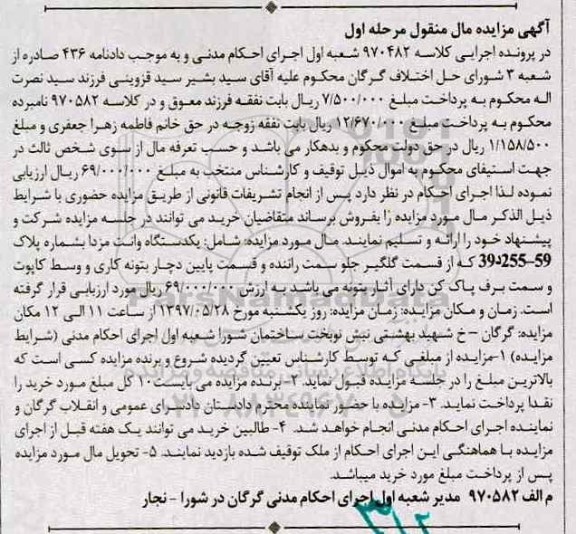 آگهی مزایده مال منقول مرحله اول
در پرونده اجرایی کلاسه ۹۷۰۴۸۲ شعبه اول اجرای احکام مدنی و به موجب دادنامه ۴۳۶ صادره از
شعبه ۳ شورای حل اختلاف گرگان محکوم علیه آقای سید بشیر سید قزوینی فرزند سید نصرت
اله محکوم به پرداخت مبلغ ۷/۵۰۰/۰۰۰ ریال بابت نفقه فرزند معوق و در کلاسه ۹۷۰۵۸۲ نامبرده
محکوم به پرداخت مبلغ ۱۲/۶۷۰/۰۰۰ ریال بابت نفقه زوجه در حق خانم فاطمه زهرا جعفری و مبلغ
۱/۱۵۸/۵۰۰ ریال در حق دولت محکوم و بدهکار می باشد و حسب تعرفه مال از سوی شخص ثالث در
جهت استیفای محکوم به اموال ذیل توقیف و کارشناس منتخب به مبلغ ۶۹/۰۰۰/۰۰۰ ریال ارزیابی
نموده لذا اجرای احکام در نظر دارد پس از انجام تشریفات قانونی از طریق مزایده حضوری با شرایط
ذیل الذکر مال مورد مزایده را بفروش برساند متقاضیان خرید می توانند در جلسه مزایده شرکت و
پیشنهاد خود را ارائه و تسلیم نمایند. مال مورد مزایده: شامل: یکدستگاه وانت مزدا بشماره پلاک
59-255د39 که از قسمت گلگیر جلو سمت راننده و قسمت پایین دچار بتونه کاری و وسط کاپوت
و سمت برف پاک کن دارای آثار بتونه می باشد به ارزش ۶۹/۰۰۰/۰۰۰ ریال مورد ارزیابی قرار گرفته
است. زمان و مکان مزایده: زمان مزایده: روز یکشنبه مورخ ۱۳۹۷/۰۵/۲۸ از ساعت ۱۱ الی ۱۲ مکان
مزایده: گرگان – خ شهید بهشتی نبش نوبخت ساختمان شورا شعبه اول اجرای احکام مدنی (شرایط
مزایده) ۱-مزایده از مبلغی که توسط کارشناس تعیین گردیده شروع و برنده مزایده کسی است که
بالاترین مبلغ را در جلسه مزایده قبول نماید. ۲- برنده مزایده می بایست ۱۰ کل مبلغ مورد خرید را
نقدا پرداخت نماید. ۳- مزایده با حضور نماینده محترم دادستان دادسرای عمومی و انقلاب گرگان و
نماینده اجرای احکام مدنی انجام خواهد شد. ۴- طالبین خرید می توانند یک هفته قبل از اجرای
مزایده با هماهنگی این اجرای احکام از ملک توقیف شده بازدید نمایند. ۵- تحویل مال مورد مزایده
پس از پرداخت مبلغ مورد خرید میباشد.
م الف ۹۷۰۵۸۲ مدیر شعبه اول اجرای احکام مدنی گرگان در شورا - نجار